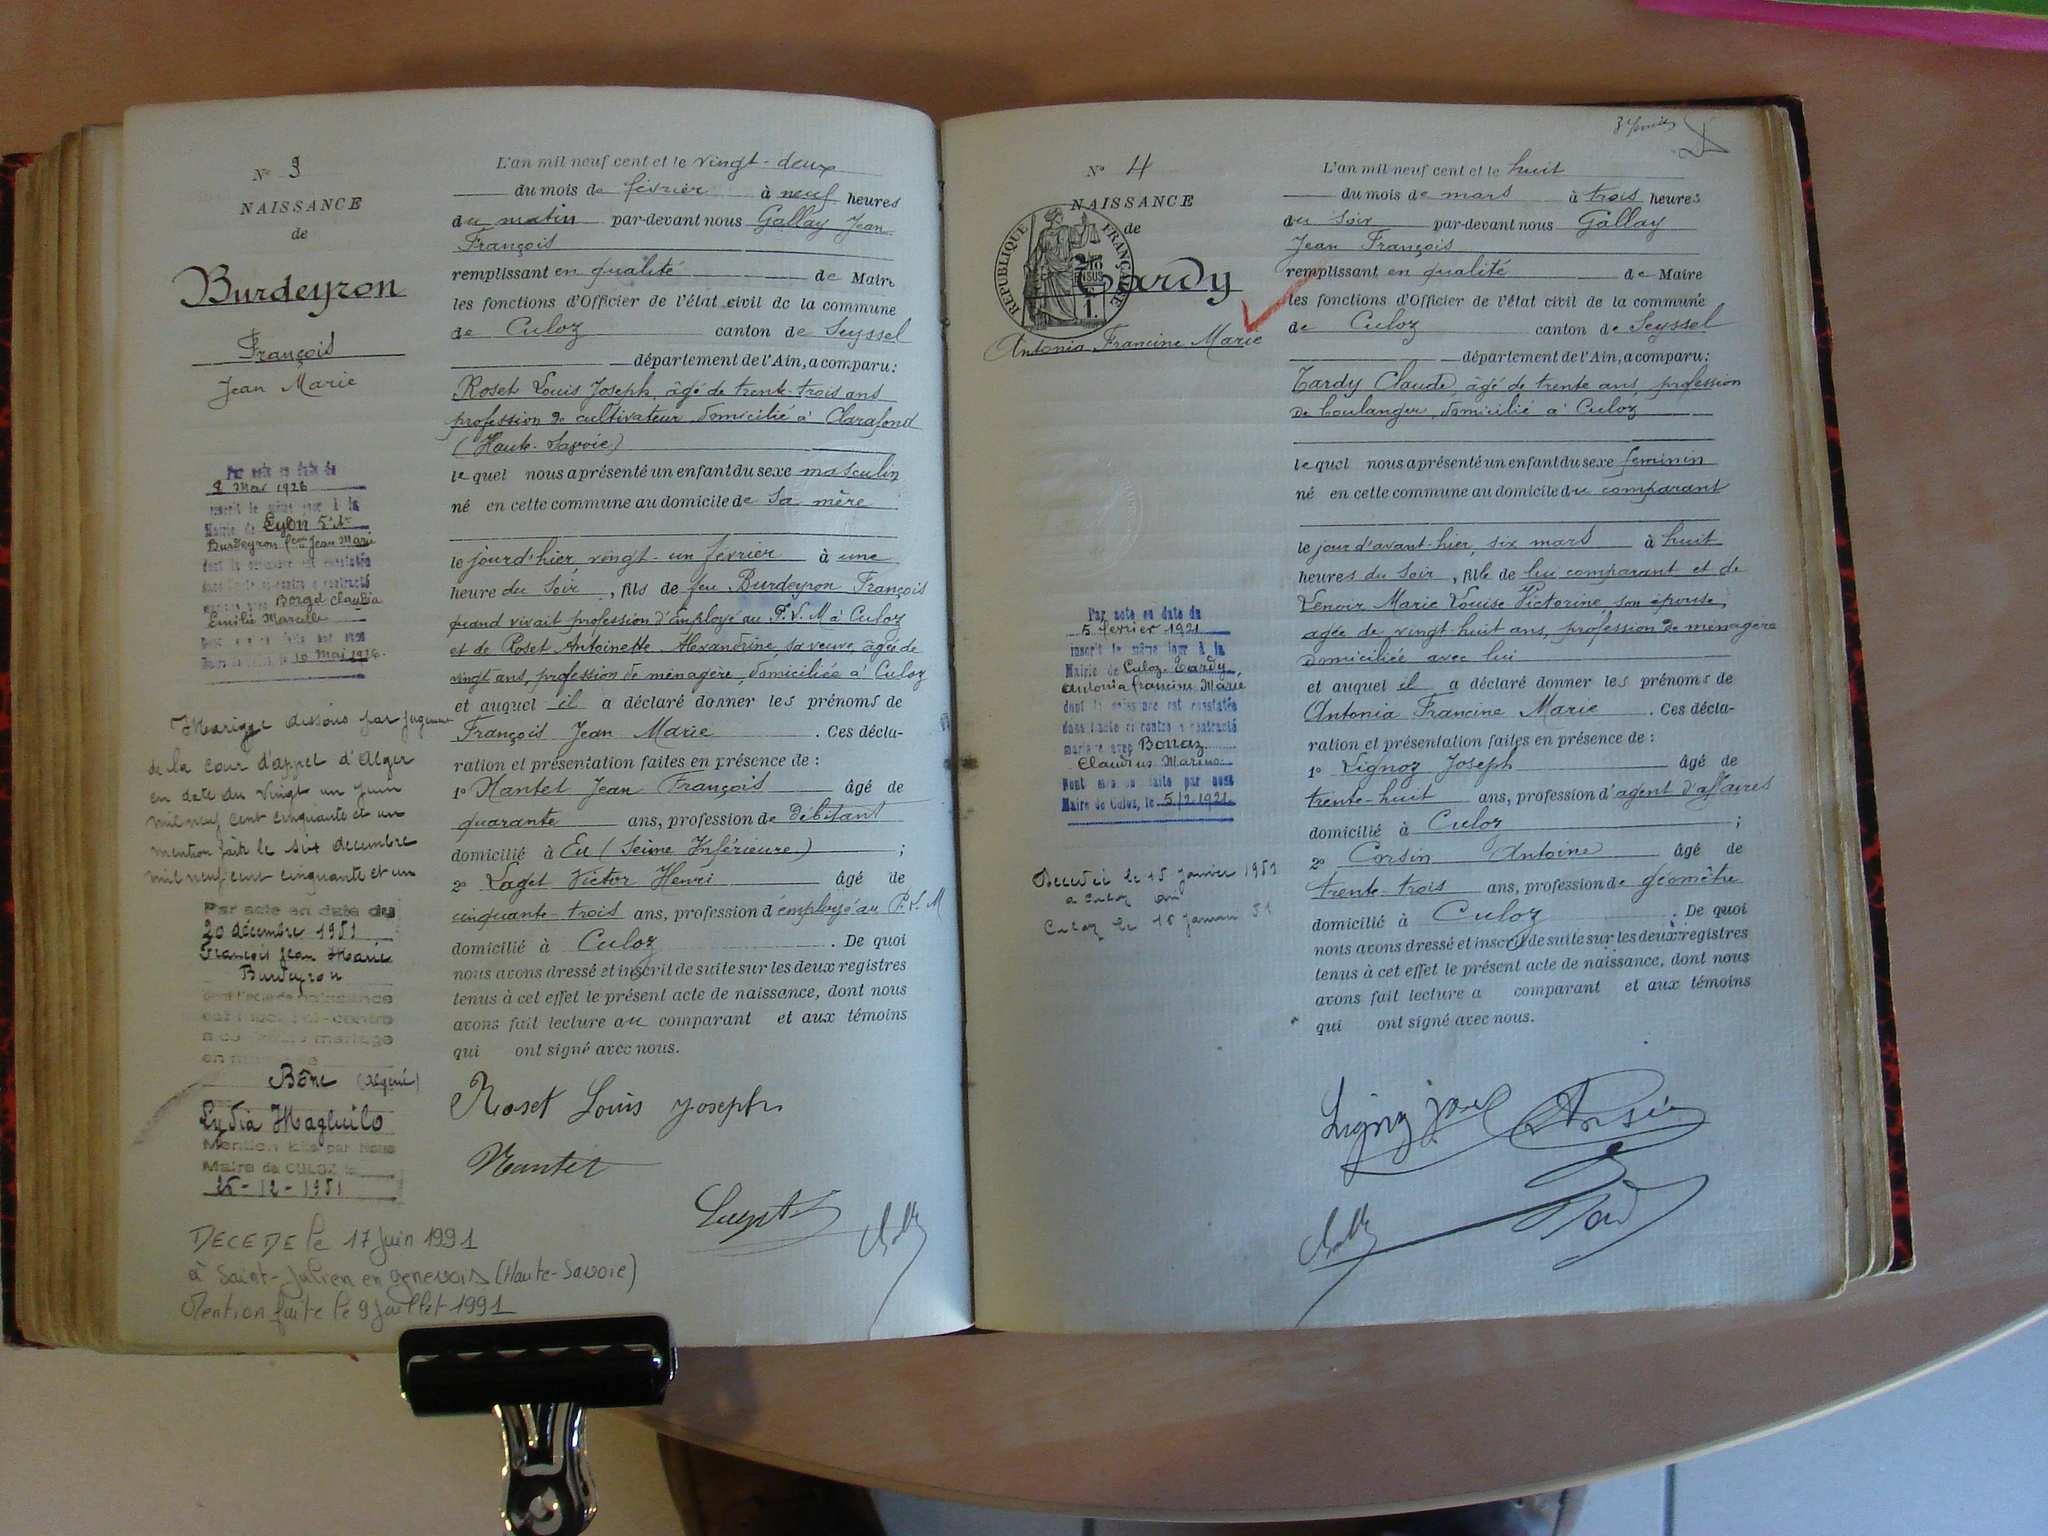 Nº 3
NAISSANCE
de
Burdeyron
François
Jean Marie
Par acte en date du
8 Mai 1926
inscrit le même jour à la
Mairie de Lyon 5e
Burdeyron fcois Jean Marie
dont la naissance est constatée
dans l'acte ci-contre a contracté
mariage avec Borget Claudia
Emilie Marcelle
10 Mai 1926
Mariage dissous par jugement
de la Cour d'appel d'Alger
en date du vingt un Juin
mil neuf cent cinquante et un
mention faite le six decembre
mil neuf cent cinquante et un
Par acte en date du
20 décembre 1951
François Jean Marie
Burdeyron
dont l'acte de naissance
est inscrit ci-contre
a contracté mariage
en mairie de
Bône (Algérie)
Lydia Magliulo
Mention faite par Nous
Maire de CULOZ le
26-12-1951
DECEDE le 17 Juin 1991
à Saint-Julien en genevois (Haute-Savoie)
Mention faite le 9 Juillet 1991
L'an mil neuf cent et le vingt-deux
du mois de février à neuf heures
du matin par-devant nous Gallay Jean
François
remplissant en qualité de Maire
les fonctions d'Officier de l'état civil de la commune
de Culoz canton de Seyssel
département de l'Ain, a comparu:
Roset Louis Joseph, âgé de trente-trois ans
profession de cultivateur domicilié à Clarafond
(Haute-Savoie)
lequel nous a présenté un enfant du sexe masculin
né en cette commune au domicile de sa mère
le jour d'hier, vingt-un février à une
heure du soir, fils de feu Burdeyron François
quand vivait profession d'Employé au P.L.M à Culoz
et de Roset Antoinette Alexandrine, sa veuve, âgée de
vingt ans, profession de ménagère, domiciliée à Culoz
et auquel il a déclaré donner les prénoms de
François Jean Marie. Ces décla-
ration et présentation faites en présence de:
1º Nantet Jean François âgé de
quarante ans, profession de Débitant
domicilié à Eu (Seine Inférieure);
2º Laget Victor Henri âgé de
cinquante-trois ans, profession d'employé au P.L.M
domicilié à Culoz. De quoi
nous avons dressé et inscrit de suite sur les deux registres
tenus à cet effet le présent acte de naissance, dont nous
avons fait lecture au comparant et aux témoins
qui ont signé avec nous.
Roset Louis Joseph
Nantet
Nº 4
NAISSANCE
de
RÉPUBLIQUE FRANÇAISE
Tardy
Antonia Francine Marie
Par acte en date du
5 février 1921
inscrit le même jour à la
Mairie de Culoz Tardy
Antonia francine Marie
dont la naissance est constatée
dans l'acte ci contre a contracté
mariage avec Bouraz
Claudius Marius
Dont mention faite par nous
Maire de Culoz, le 5/2.1921
Décédée le 15 Janvier 1951
à Culoz Ain
Culoz le 16 Janvier 51
L'an mil neuf cent et le huit
du mois de mars à trois heures
du soir par-devant nous Gallay
Jean François
remplissant en qualité de Maire
les fonctions d'Officier de l'état civil de la commune
de Culoz canton de Seyssel
département de l'Ain, a comparu:
Tardy Claude, âgé de trente ans, profession
de boulanger, domicilié à Culoz
lequel nous a présenté un enfant du sexe féminin
né en cette commune au domicile du comparant
le jour d'avant-hier, six mars à huit
heures du soir, fille de lui comparant et de
Lenoir Marie Louise Victorine, son épouse,
agée de vingt-huit ans, profession de ménagère
domiciliée avec lui
et auquel il a déclaré donner les prénoms de
Antonia Francine Marie. Ces décla-
ration et présentation faites en présence de:
1º Lignoz Joseph âgé de
trente-huit ans, profession d'agent d'affaires
domicilié à Culoz;
2º Corsin Antoine âgé de
trente-trois ans, profession de géomètre
domicilié à Culoz. De quoi
nous avons dressé et inscrit de suite sur les deux registres
tenus à cet effet le présent acte de naissance, dont nous
avons fait lecture a comparant et aux témoins
qui ont signé avec nous.